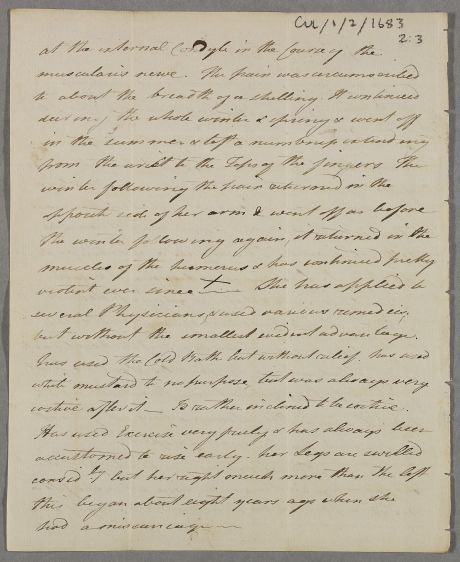 CUL/1/2/1683
2:3
at the internal Condyle in the Course of the
muscularis nerve. The pain was circumscribed
to about the breadth of a shilling. It continued
during the whole winter & spring & went off
in the summer & left a numbness extending
from the wrist to the Tops of the fingers The
winter following the pain returned in the
side of her arm & went off as before
the winter following again, it returned in the
muscles of the humerus & has continued pretty
violent ever since + She has applied to
several Physicians, & used various remedies,
but without the smallest evident advantage.
has used the Cold Bath but without relief, has used
white mustard to no purpose, but was always very
costive after it — Is rather inclined to be costive.
Has used Exercise very freely & has always been
accustomed to rise early. her Legs are swelled
consid.ly but her right much more than the left
this began about eight years ago when she
had a miscarriage —